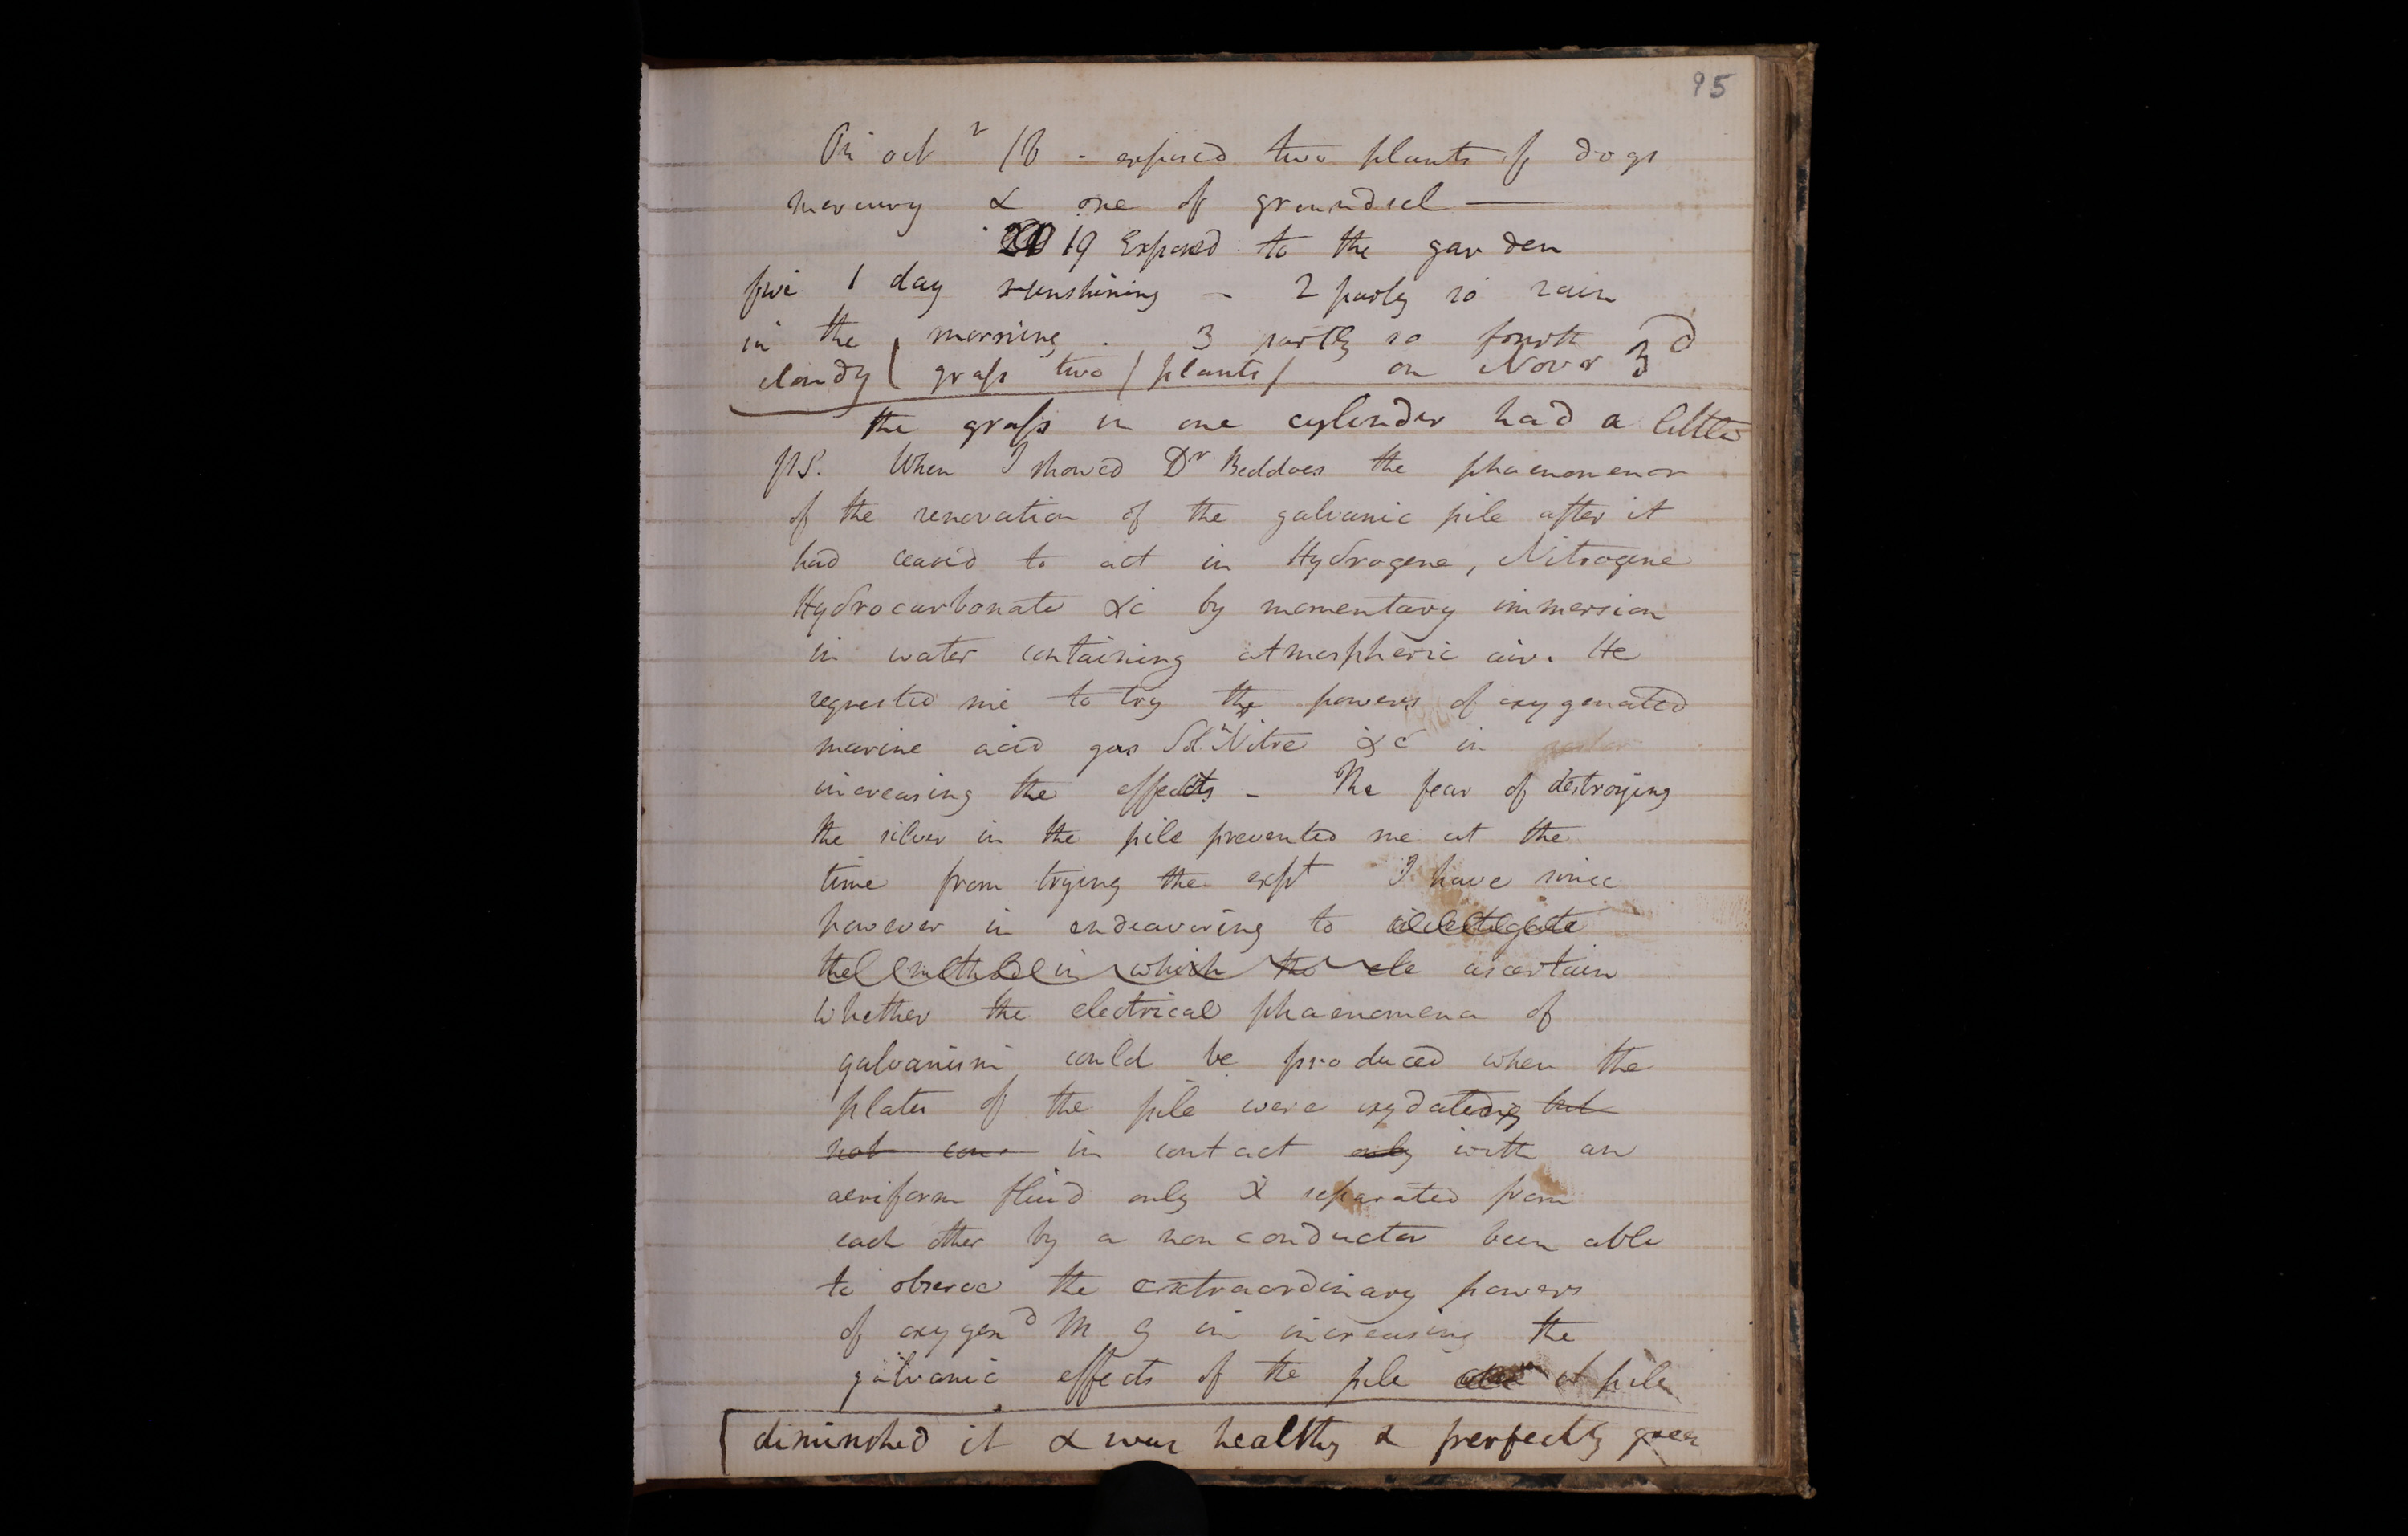 95
On octr 18 - exposed two plants of dogs
mercury & one of groundsel —
19 Exposed to the garden
five 1 day sunshining - 2 partly so rain
in the morning. 3 partly so fourth
cloudy ( grass two / plants / on Novr 3d
the grass in one cylinder had a little
PS. When I showed Dr Beddoes the phaenomenon
of the renovation of the galvanic pile after it
had ceas'd to act in Hydrogene, Nitrogene
Hydrocarbonate &c by momentary immersion
in water containing atmospheric air. He
requested me to try the powers of oxygenated
marine acid gas Soln Nitre &c in
increasing the effects - The fear of destroying
the silver in the pile prevented me at the
time from trying the expt I have since
however in endeavoring to investigate
the method in which the ele ascertain
whether the electrical phaenomena of
galvanism could be produced when the
plates of the pile were oxydating but
not con in contact only with an
aeriform fluid only & separated from
each other by a non conductor been able
to observe the extraordinary powers
of oxygend M G in increasing the
galvanic effects of the pile pile
diminished it & was healthy & perfectly green